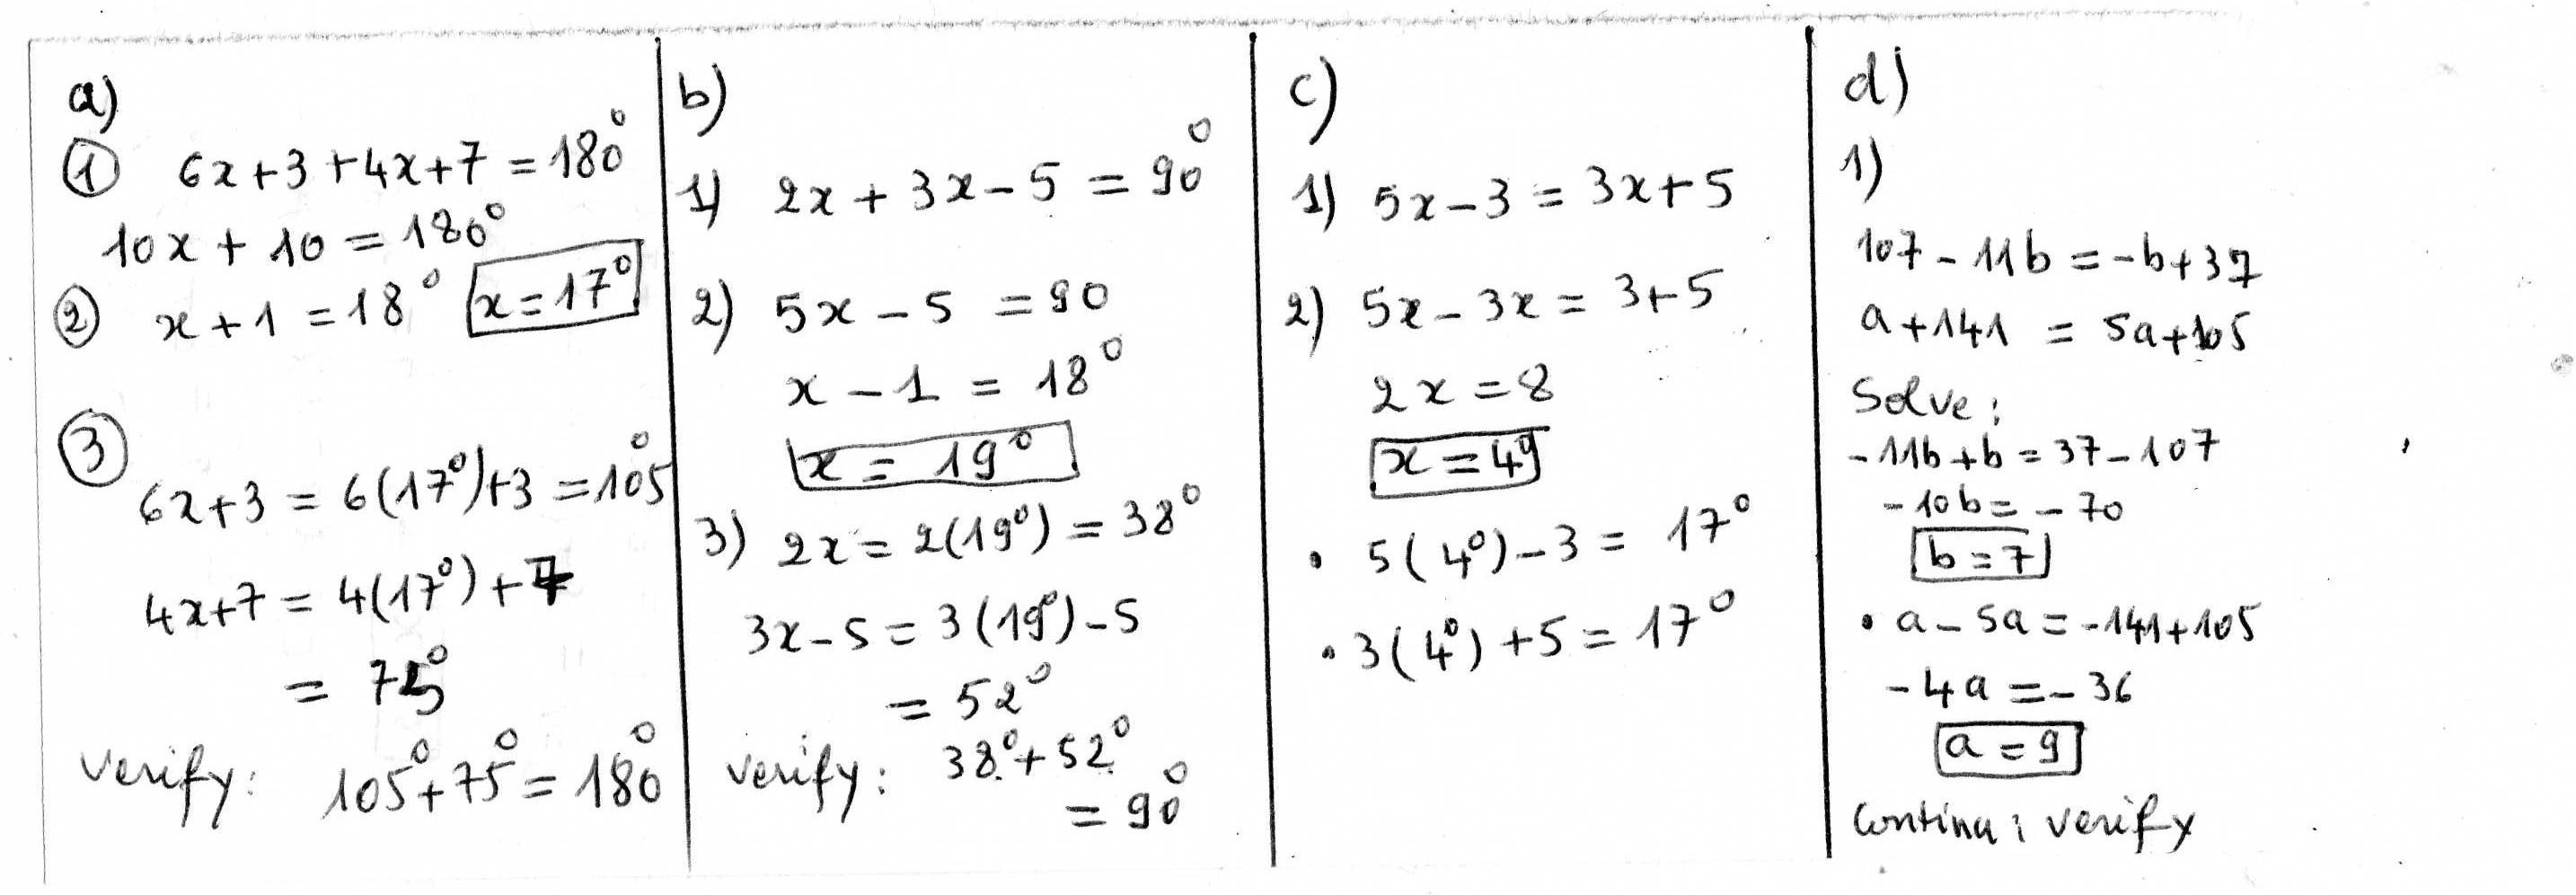 a)
① 6x+3+4x+7 = 180°
10x + 10 = 180°
② x+1 = 18° x = 17°
③
6x+3 = 6(17°)+3 = 105°
4x+7 = 4(17°)+7
= 75°
Verify: 105°+75° = 180°
b)
1) 2x + 3x - 5 = 90°
2) 5x - 5 = 90
x - 1 = 18°
x = 19°
3) 2x = 2(19°) = 38°
3x-5 = 3(19°)-5
= 52°
Verify: 38°+52°
= 90°
c)
1) 5x-3 = 3x+5
2) 5x-3x = 3+5
2x = 8
x = 4°
• 5(4°)-3 = 17°
• 3(4°)+5 = 17°
d)
1)
107-11b = -b+37
a+141 = 5a+105
Solve:
-11b+b = 37-107
-10b = -70
b = 7
• a-5a = -141+105
-4a = -36
a = 9
Continu: Verify